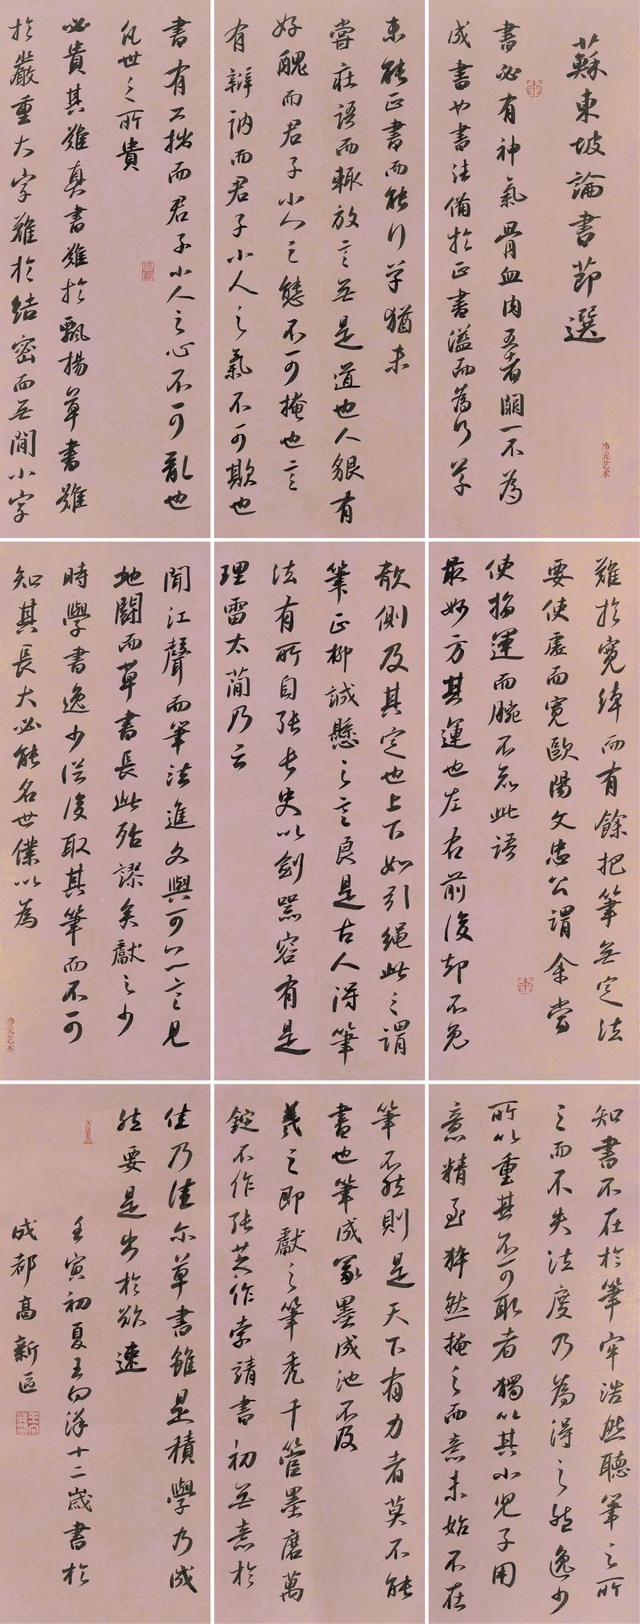 蘇東坡論書節選
書必有神氣骨血肉五者闕一不為
成書也書法備於正書溢而為行草
未能正書而能行草猶未
嘗莊語而輒放言無是道也人貌有
好醜而君子小人之態不可掩也言
有辯訥而君子小人之氣不可欺也
書有工拙而君子小人之心不可亂也
凡世之所貴
必貴其難真書難於飄揚草書難
於嚴重大字難於結密而無間小字
净元艺术
難於寬綽而有餘把筆無定法
要使虛而寬歐陽文忠公謂余當
使指運而腕不知此語
最妙方其運也左右前後卻不免
欹側及其定也上下如引繩此之謂
筆正柳誠懸之言良是古人得筆
法有所自張長史以劍器容有是
理雷太簡乃云
聞江聲而筆法進文與可亦言見
地鬬而草書長此殆謬矣獻之少
時學書逸少從後取其筆而不可
知其長大必能名世僕以為
净元艺术
知書不在於筆牢浩然聽筆之所
之而不失法度乃為得之然逸少
所以重其不可取者獨以其小兒子用
意精至猝然掩之而意未始不在
筆不然則是天下有力者莫不能
書也筆成冢墨成池不及
羲之即獻之筆禿千管墨磨萬
錠不作張芝作索靖書初無意於
佳乃佳尔草書雖是積學乃成
然要是出於欲速
壬寅初夏王向洋十二歲書於
成都高新區